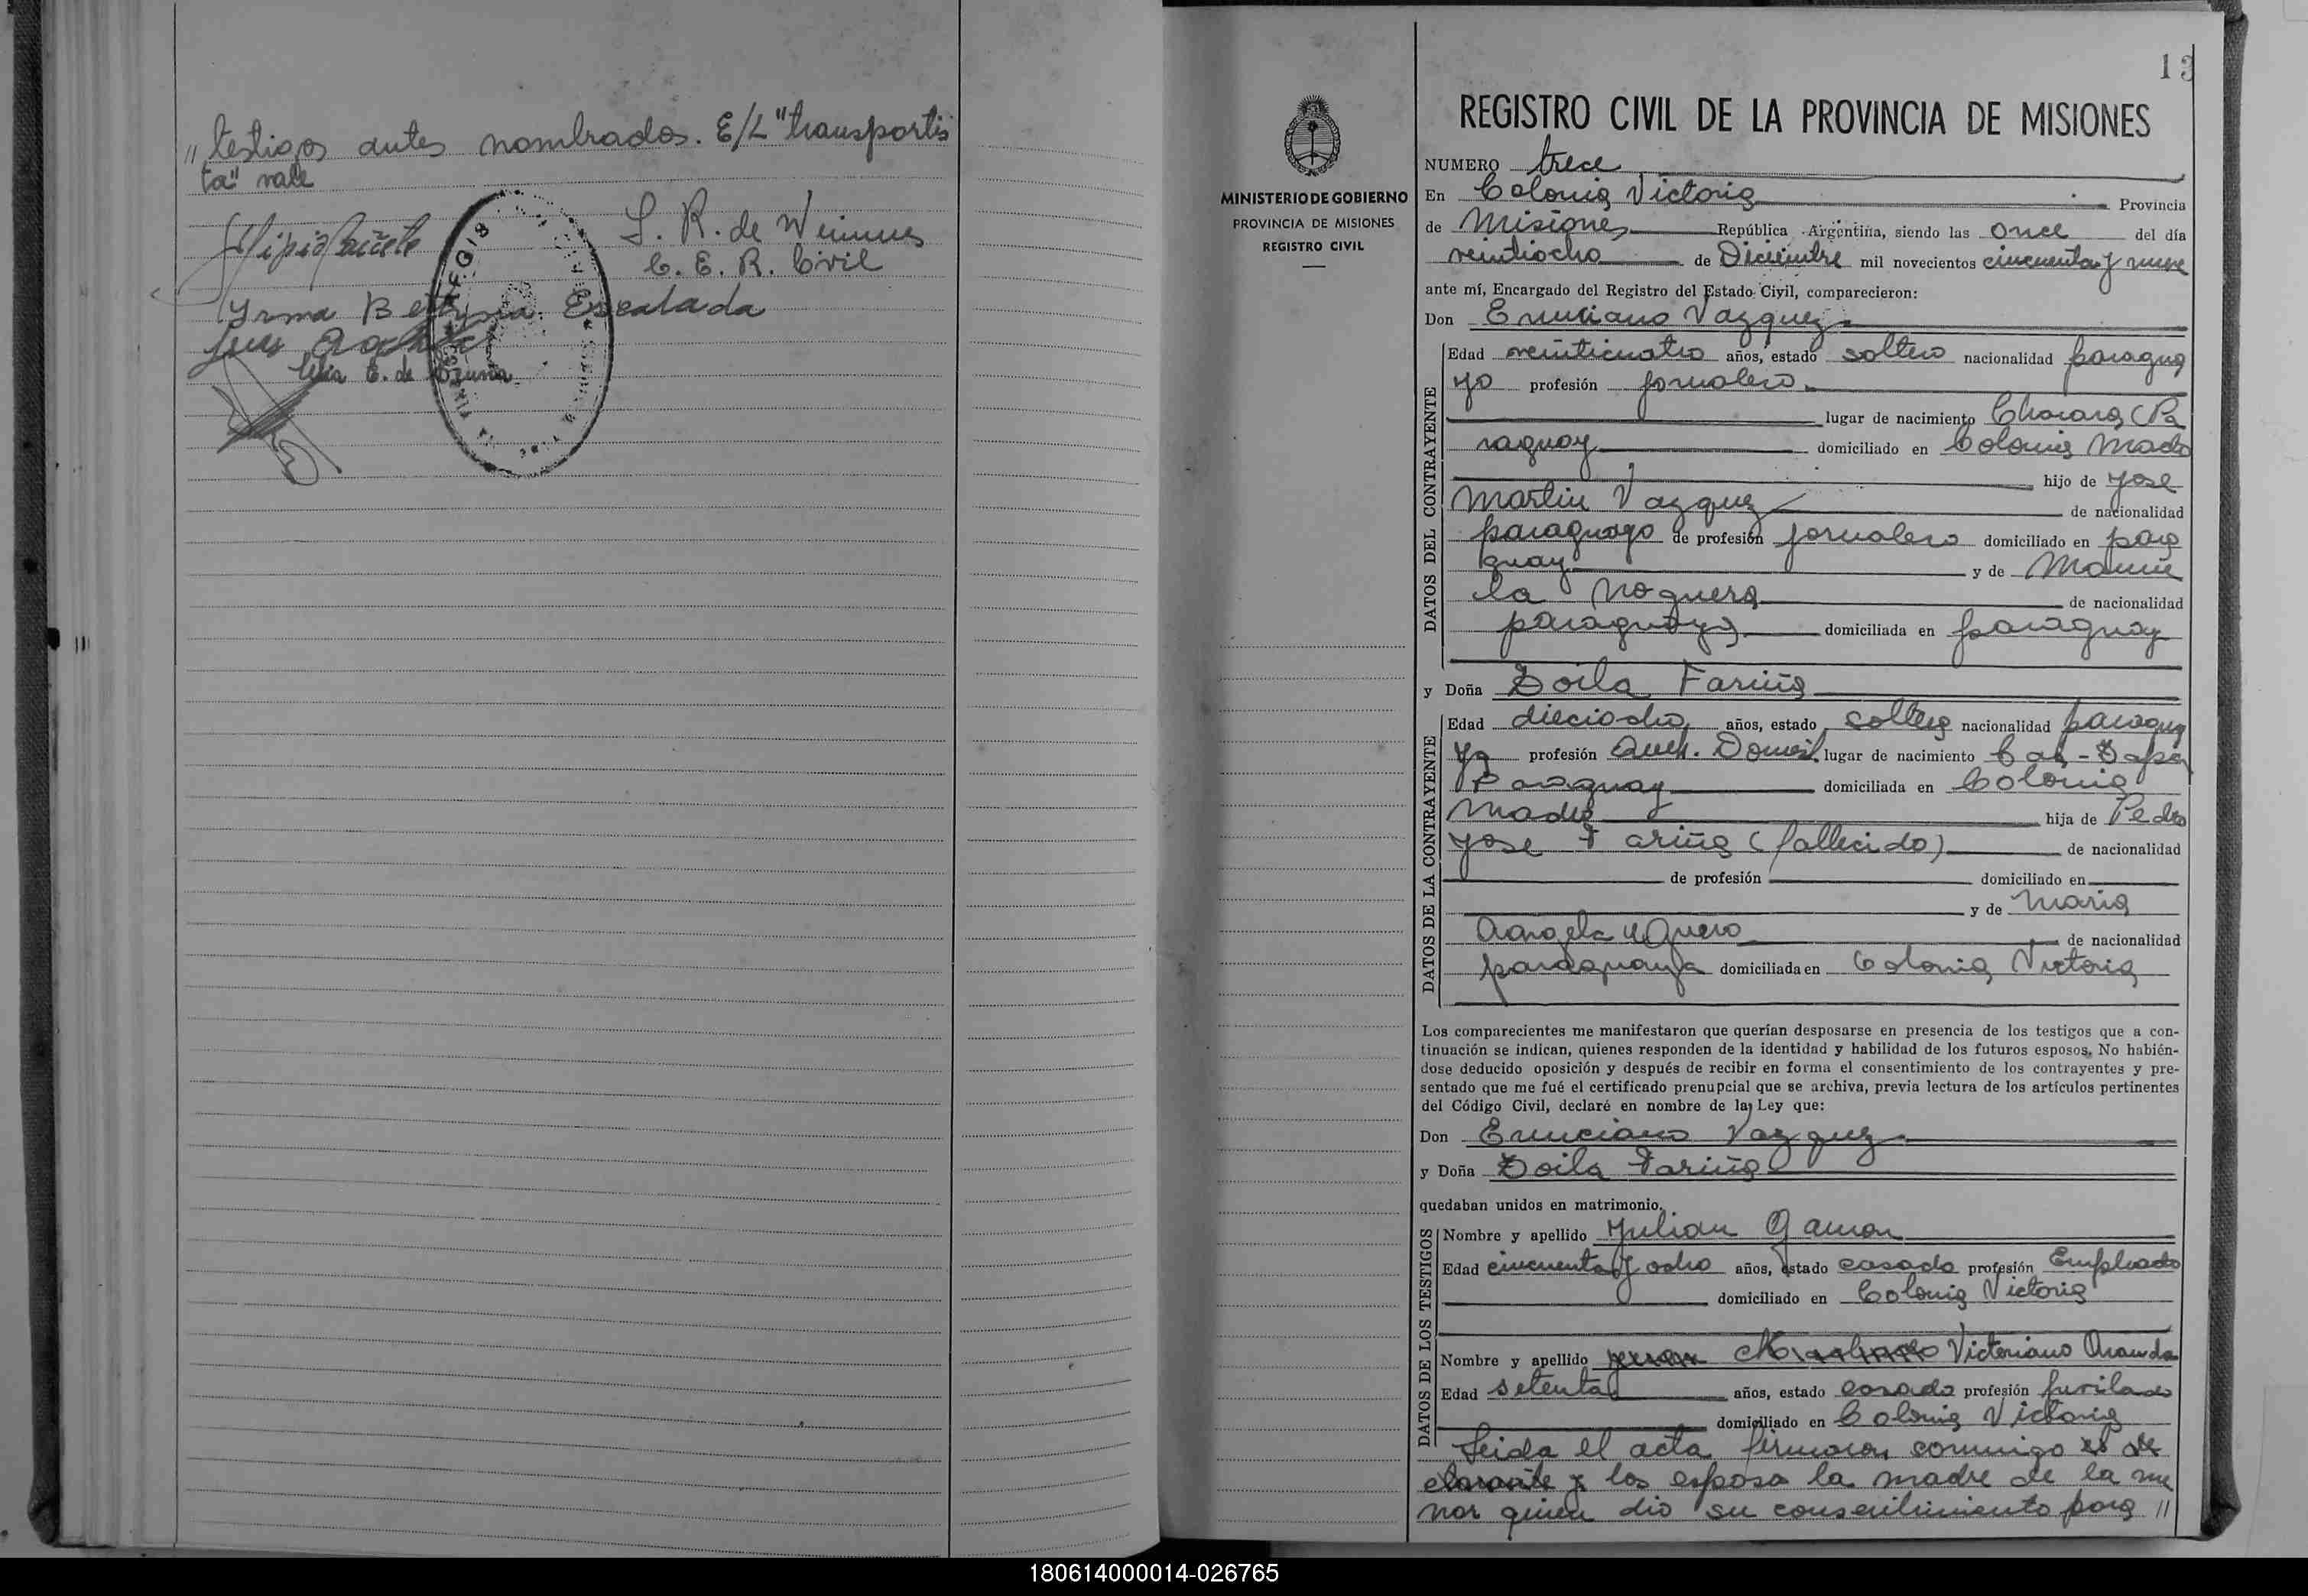 " testigos antes nombrados. E/L "transportis
ta" vale
S. R. de Weimues
C. E. R. Civil
Yrma B Escalada
13
REGISTRO CIVIL DE LA PROVINCIA DE MISIONES
MINISTERIO DE GOBIERNO
PROVINCIA DE MISIONES
REGISTRO CIVIL
NUMERO trece
En Colonia Victoria Provincia
de Misiones República Argentina, siendo las once del día
veintiocho de Diciembre mil novecientos cincuenta y nueve
ante mí, Encargado del Registro del Estado Civil, comparecieron:
Don Erunciano Vazquez
DATOS DEL CONTRAYENTE
Edad veinticuatro años, estado soltero nacionalidad paragua
yo profesión jornalero
lugar de nacimiento Charara (Pa
raguay domiciliado en Colonia Mado
hijo de Jose
Martin Vazquez de nacionalidad
paraguayo de profesión jornalero domiciliado en para
guay y de Manue
la Noguera de nacionalidad
paraguaya domiciliada en paraguay
y Doña Zoila Fariña
DATOS DE LA CONTRAYENTE
Edad dieciocho años, estado soltera nacionalidad paragua
ya profesión Queh. Domest. lugar de nacimiento Caa-Zapa
Paraguay domiciliada en Colonia
Mado hija de Pedro
Jose Fariña (fallecido) de nacionalidad
de profesión domiciliado en
y de Maria
Angela Aguero de nacionalidad
paraguaya domiciliada en Colonia Victoria
Los comparecientes me manifestaron que querían desposarse en presencia de los testigos que a con-
tinuación se indican, quienes responden de la identidad y habilidad de los futuros esposos. No habién-
dose deducido oposición y después de recibir en forma el consentimiento de los contrayentes y pre-
sentado que me fué el certificado prenupcial que se archiva, previa lectura de los artículos pertinentes
del Código Civil, declaré en nombre de la Ley que:
Don Erunciano Vazquez
y Doña Zoila Fariña
quedaban unidos en matrimonio.
DATOS DE LOS TESTIGOS
Nombre y apellido Julian Gamon
Edad cincuenta y ocho años, estado casado profesión Empleado
domiciliado en Colonia Victoria
Nombre y apellido Victoriano Aranda
Edad setenta años, estado casado profesión jubilado
domiciliado en Colonia Victoria
Leida el acta firmaron conmigo el de
clarante y los esposo la madre de la me
nor quien dio su consentimiento para "
180614000014-026765